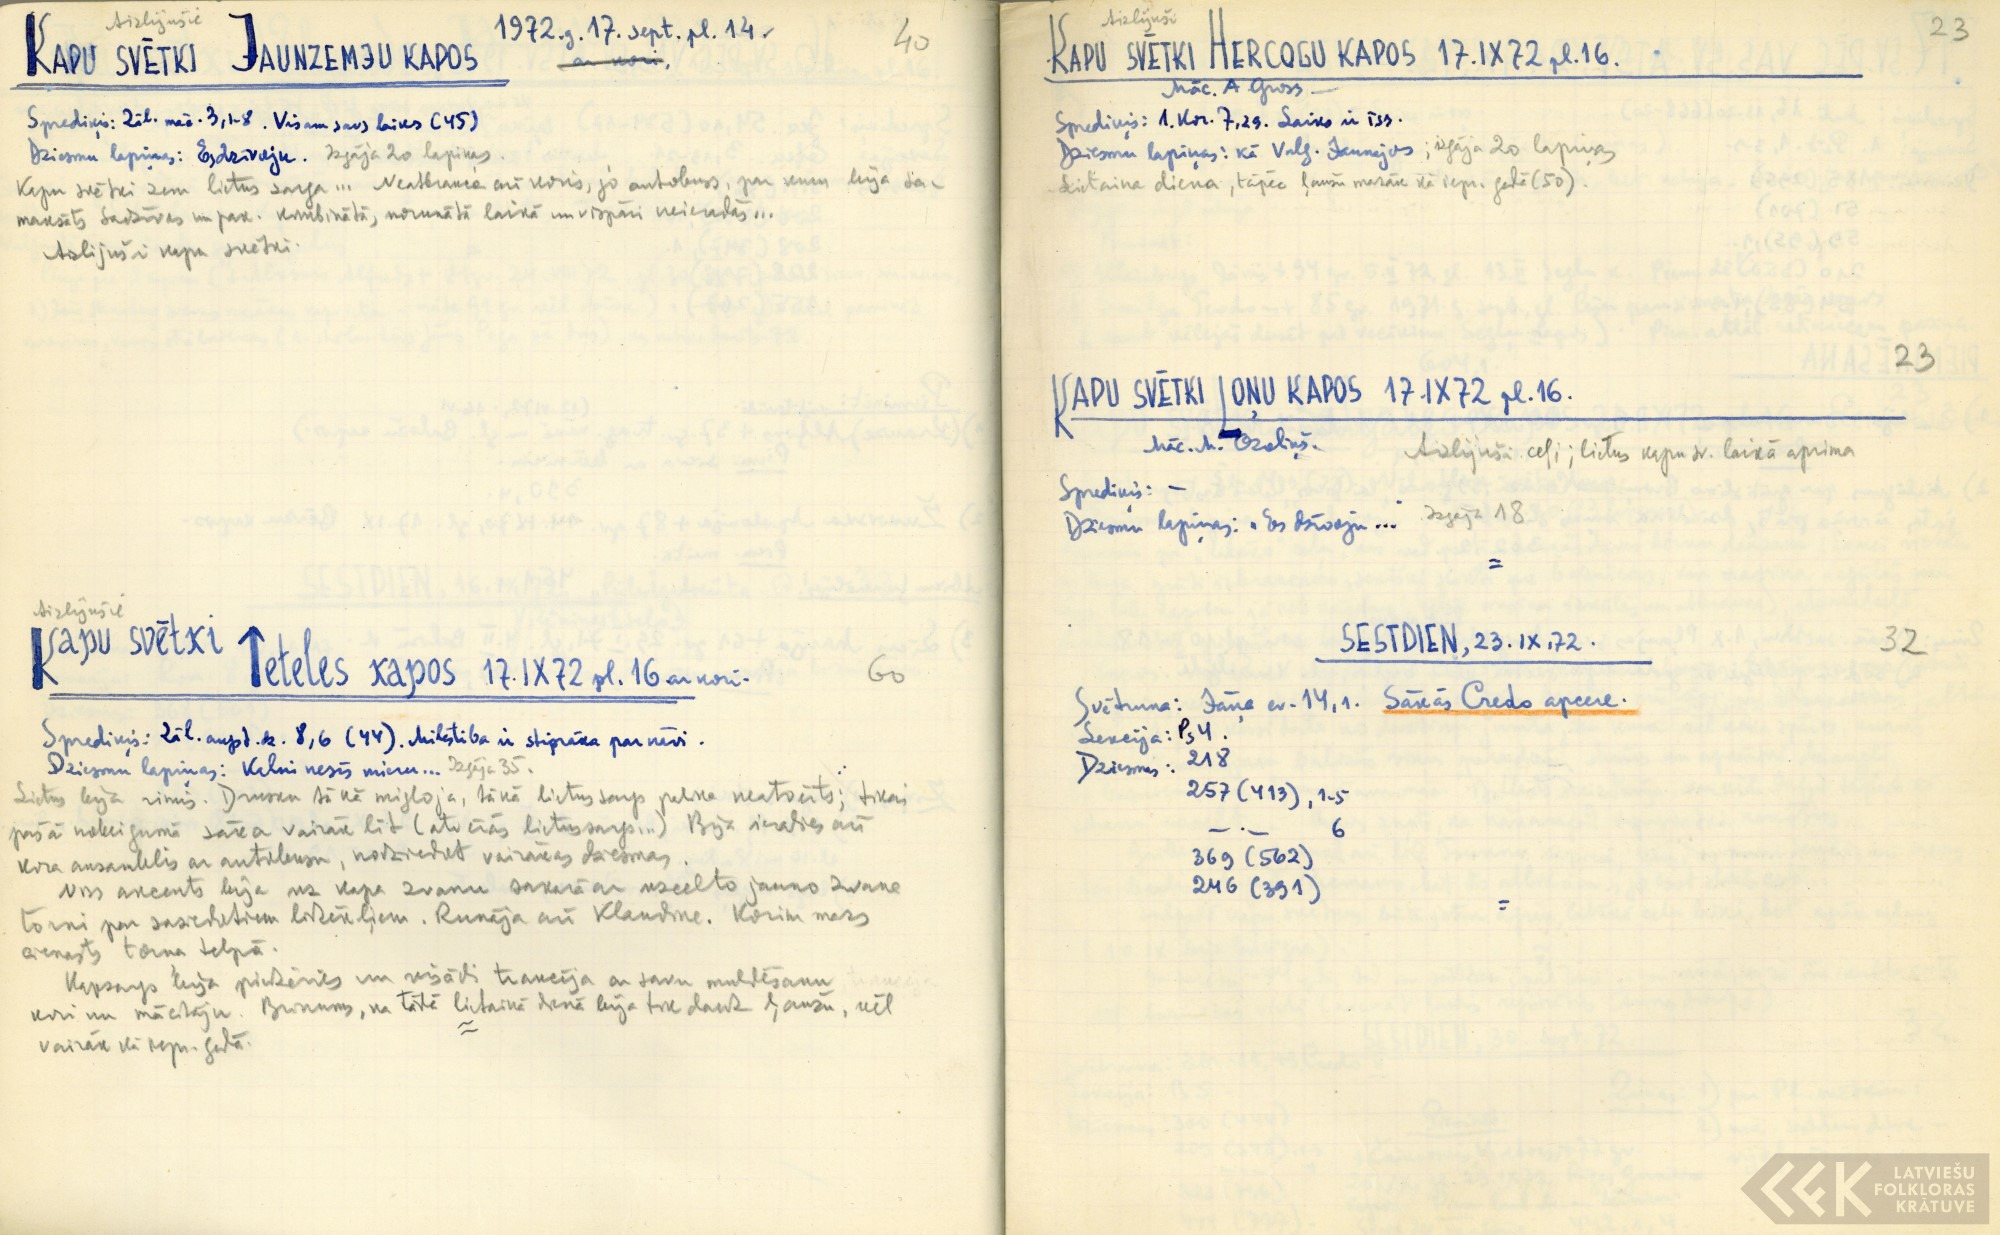 Aizlijušie
KAPU SVĒTKI JAUNZEMJU KAPOS 1972.g. 17. sept. pl. 14.
ar kori.
40
Sprediķis: Zāl. māc. 3, 1-8. Visam savs laiks (45)
Dziesmu lapiņas: Es dzīvoju. Izgāja 20 lapiņas.
Kapu svētki zem lietus sarga... Neatbrauca arī koris, jo autobuss, par kuru bija sa-
maksāts Sadzīves un pak. kombinātā, norunātā laikā un vispāri neieradās...
Aizlijuši kapu svētki.
Aizlijušie
Kapu svētki Teteles kapos 17.IX72 pl. 16 ar kori.
60
Sprediķis: Zāl. augst. dz. 8,6 (44). Mīlestība ir stiprāka par nāvi.
Dziesmu lapiņas: Kalni nesīs mieru... Izgāja 35.
Lietus bija rimis. Drusku tā kā migloja, tā kā lietussargs netvērts; tikai
pašā nobeigumā sāka vairāk līt (atvērās lietussargs...) Bija ieradies arī
kora ansamblis ar autobusu, nodziedāt vairākas dziesmas.
Viss akcents bija uz kapa zvanu sakarā ar uzcelto jauno zvana
torni par saziedotiem līdzekļiem. Runāja arī Klaudine. Korim mazs
cienasts torņa telpā.
Kapsargs bija piedzēries un
kori un mācītāju. Brīnums, ka tādā lietainā dienā bija tik daudz ļaužu, vēl
vairāk kā iepr. gadā.
Aizlijuši
KAPU SVĒTKI HERCOGU KAPOS 17.IX72 pl. 16.
23
Māc. A Gross —
Sprediķis: 1. Kor. 7,29. Laiks ir īss.
Dziesmu lapiņas: kā Valg. Jaunajos; izgāja 20 lapiņas
Lietaina diena, tāpēc ļaužu mazāk kā iepr. gadā (50).
23
KAPU SVĒTKI LOŅU KAPOS 17.IX72 pl. 16.
Māc. M. Ozoliņš. Aizlijuši ceļi; lietus kapu sv. laikā aprima
Sprediķis: —
Dziesmu lapiņas: „Es dzīvoju..." Izgāja 18
=
SESTDIEN, 23.IX,72.
32
Svētruna: Jāņa ev. 14,1. Sākās Credo apcere.
Lekcija: Ps 4.
Dziesmas: 218
257 (413), 1-5
— . — 6
369 (562)
246 (391)
=
LATVIEŠU
FOLKLORAS
KRĀTUVE